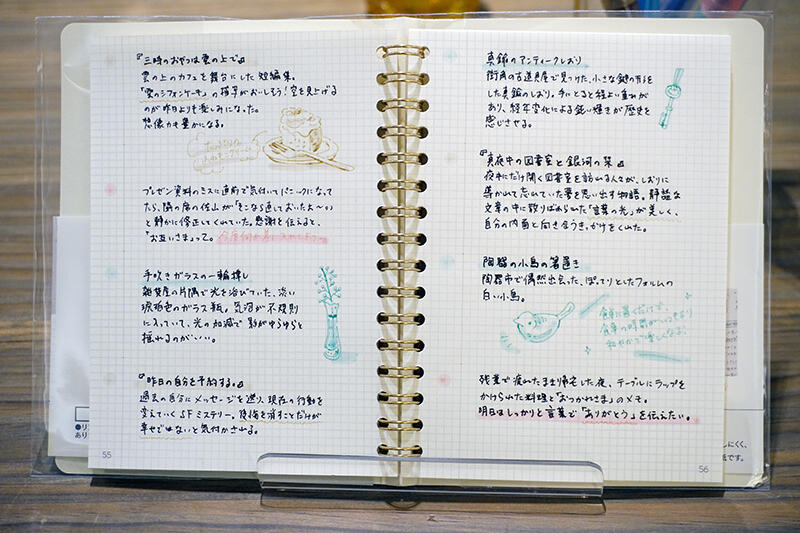 『三時のおやつは雲の上で』
雲の上のカフェを舞台にした短編集。
「雲のシフォンケーキ」の描写がおいしそう!空を見上げる
のが昨日よりも楽しみになった。
想像力も豊かになる。
プレゼン資料のミスに直前で気付いてパニックになって
たら、隣の席の佐山が「そこなら直しておいたよ〜」
と静かに修正してくれていた。感謝を伝えると、
「お互いさま」って。
手吹きガラスの一輪挿し
雑貨屋の片隅で光を浴びていた、淡い
琥珀色のガラス瓶。気泡が不規則
に入っていて、光の加減で影がゆらゆらと
揺れるのがいい。
『昨日の自分を予約する。』
過去の自分にメッセージを送り、現在の行動を
変えていくSFミステリー。後悔を消すことだけが
幸せではないと気付かされる。
55
真鍮のアンティークしおり
街角の古道具屋で見つけた、小さな鍵の形を
した真鍮のしおり。手にとると程よい重みが
あり、経年変化による鈍い輝きが歴史を
感じさせる。
『真夜中の図書室と銀河の栞』
夜中にだけ開く図書室を訪れる人々が、しおりに
導かれて忘れていた夢を思い出す物語。静謐な
文章の中に散りばめられた「言葉の光」が美しく、
自分の内面と向き合うきっかけをくれた。
陶器の小鳥の箸置き
陶器市で偶然出会った、ぽってりとしたフォルムの
白い小鳥。
食卓に置くだけで、
食事の時間が
和やかで楽しくなる。
残業で疲れたまま帰宅した夜、テーブルにラップを
かけられた料理と「おつかれさま」のメモ。
明日はしっかりと言葉で「ありがとう」を伝えたい。
56